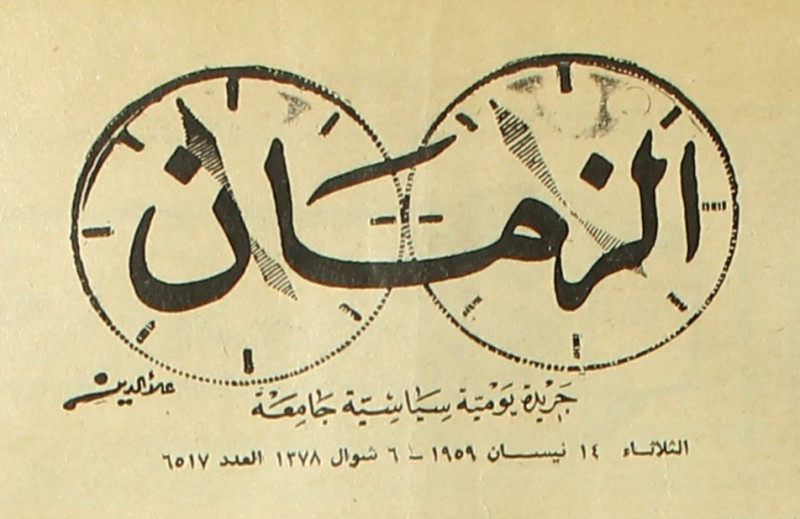 الزمان
علاء الدين
جَرِيْدة يَوْميّة سِيَاسِيّة جَامِعَة
الثلاثاء ١٤ نيسان ١٩٥٩ - ٦ شوال ١٣٧٨ العدد ٦٥١٧